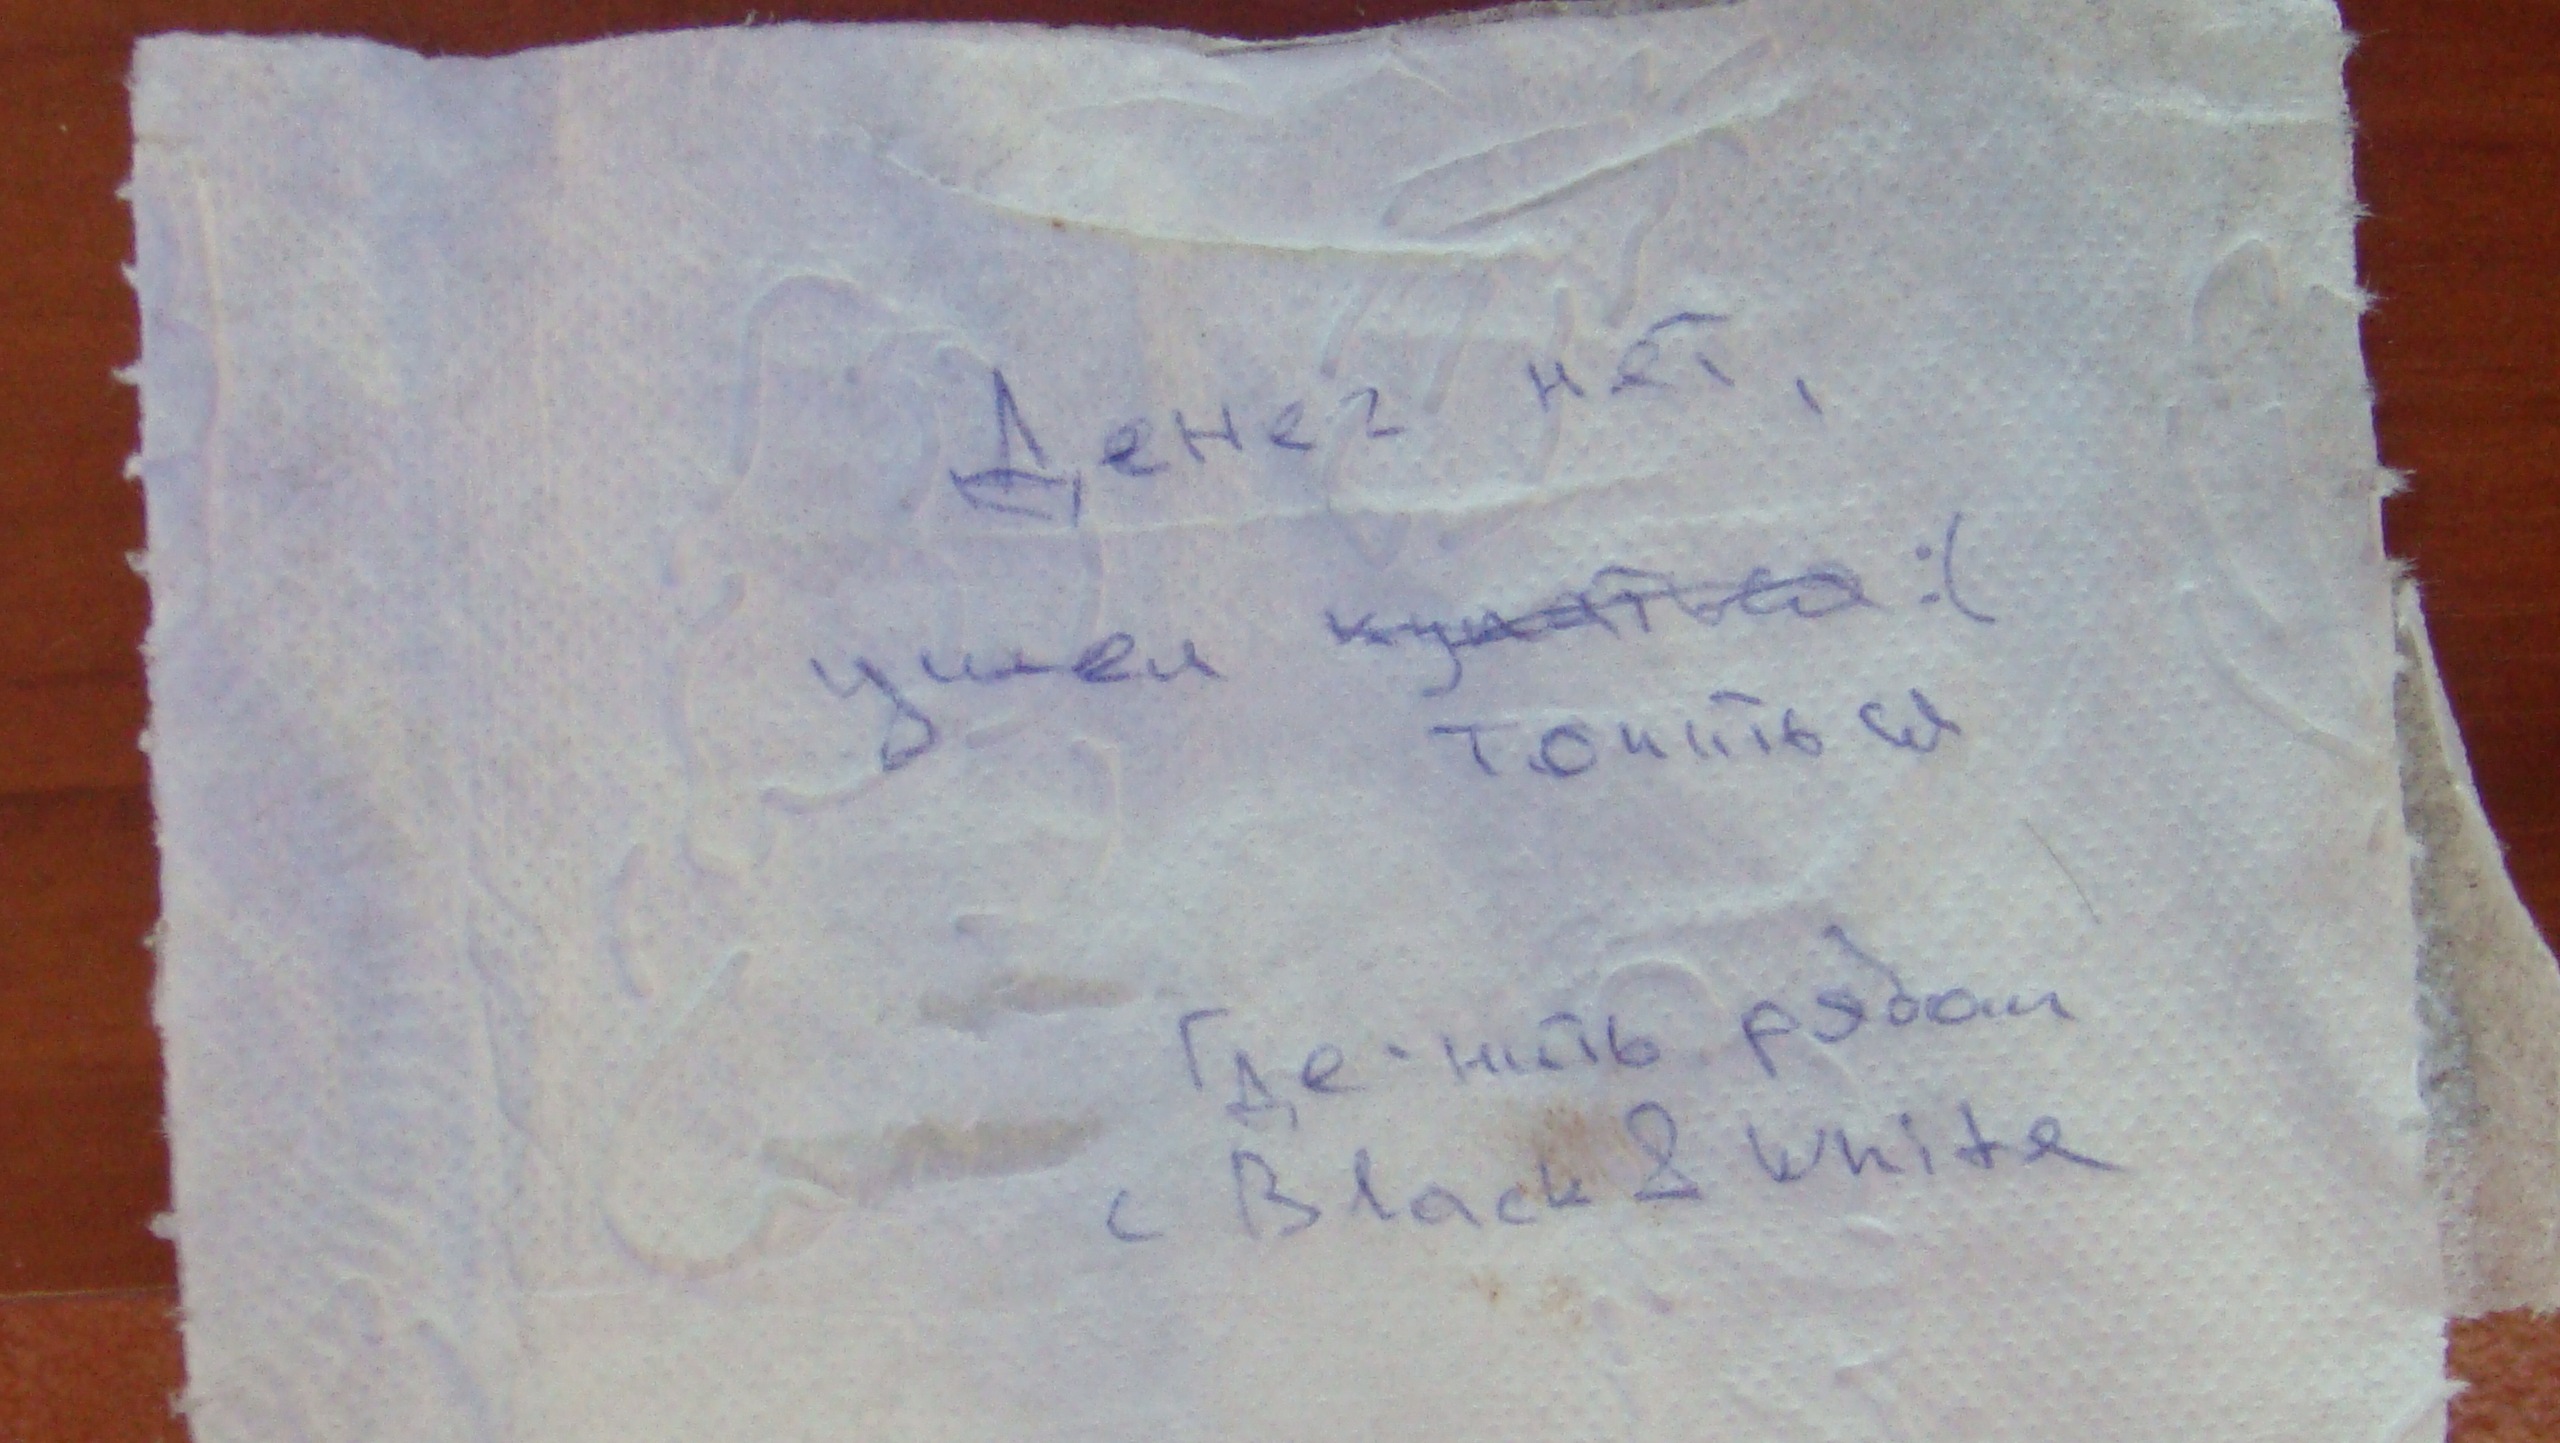 Денег нет,
ушел купаться :(
топиться
Где-нить рядом
с Black & White